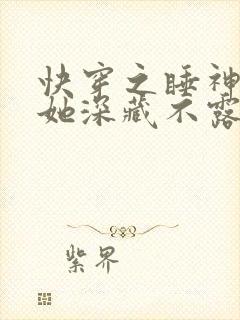 快穿之睡神
她深藏不露
紫界